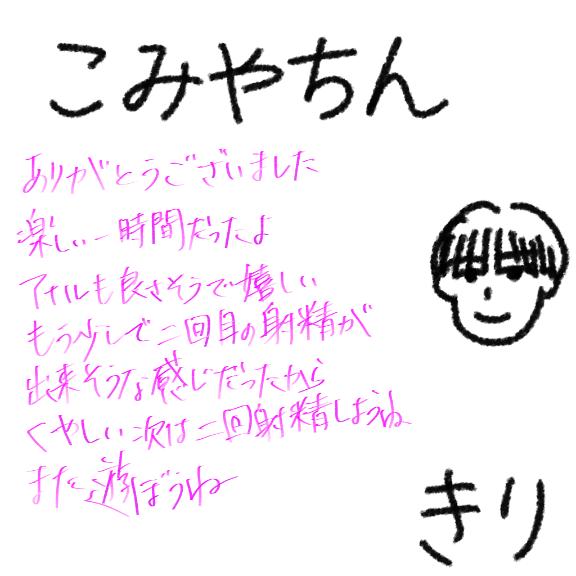 こみやちん
ありがとうございました
楽しい一時間だったよ
アナルも良さそうで嬉しい
もう少しで二回目の射精が
出来そうな感じだったから
くやしい次は二回射精しようね
また遊ぼうね
きり